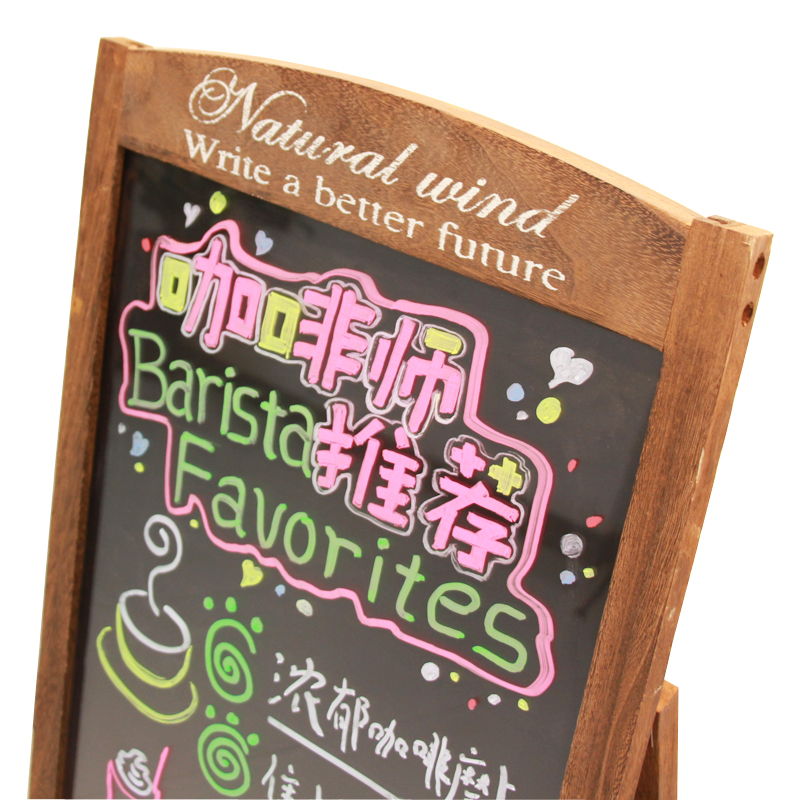 Natural wind
Write a better future
咖啡师
Barista
推荐
Favorites
浓郁咖啡